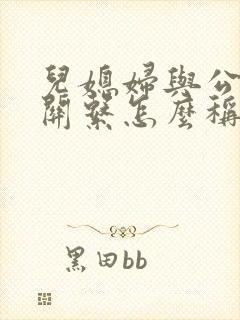 兒媳婦與公
關繫怎麼稱
黑田bb